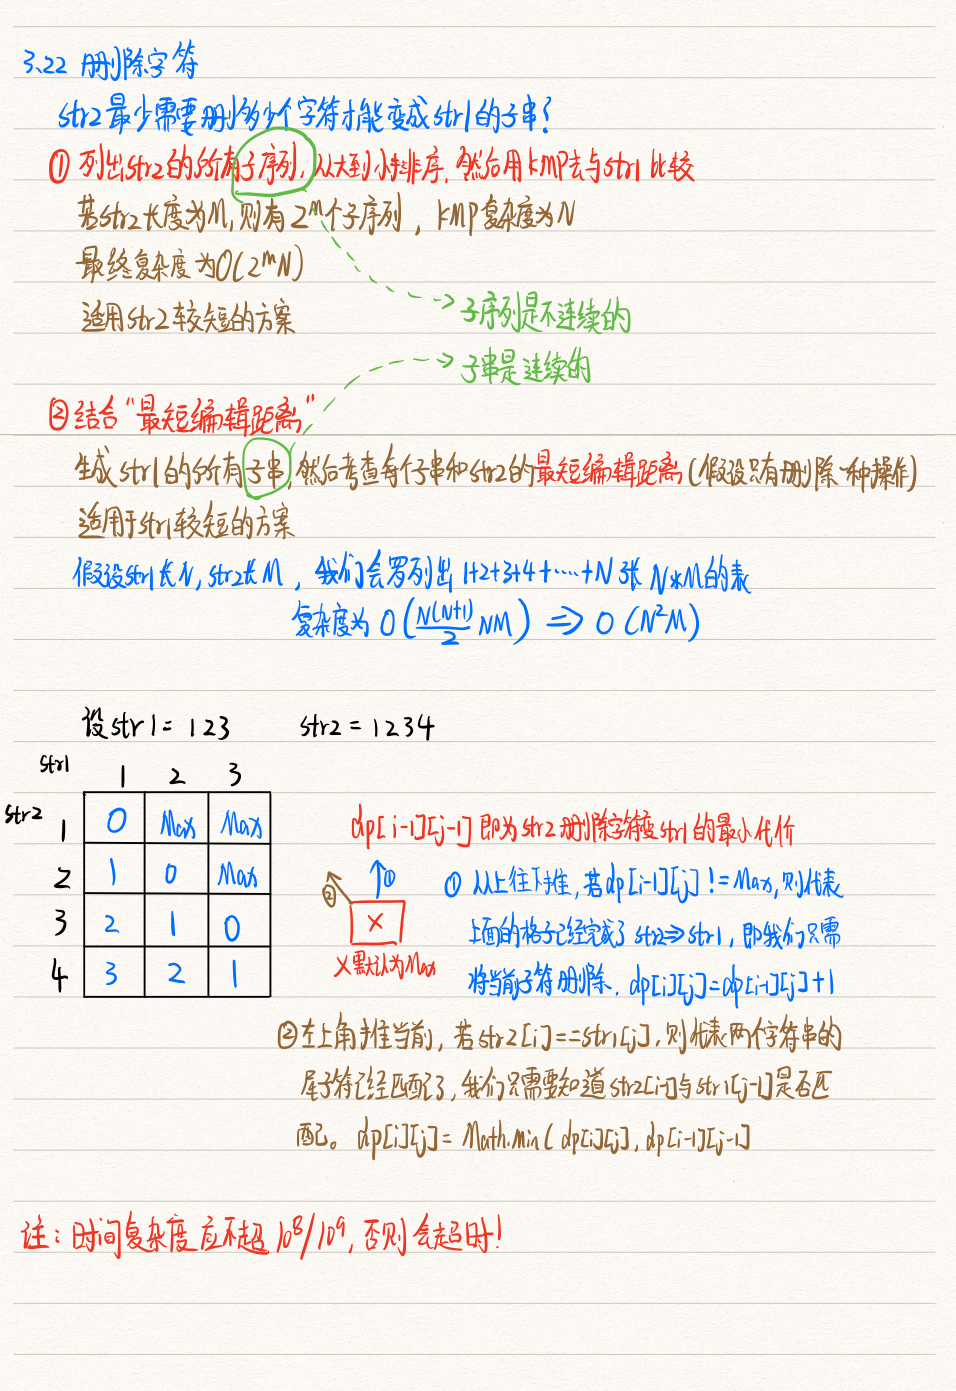 3.22 删除字符
str2最少需要删多少个字符才能变成str1的子串?
① 列出str2的所有子序列,从大到小排序,然后用kmp去与str1比较
若str2长度为M,则有2^M个子序列,kmp复杂度为N
最终复杂度为O(2^m N)
适用str2较短的方案
子序列是不连续的
子串是连续的
② 结合“最短编辑距离”
生成str1的所有子串,然后考查每个子串和str2的最短编辑距离(假设只有删除一种操作)
适用于str1较短的方案
假设str1长N,str2长M,我们会罗列出1+2+3+4+……+N张N*M的表
复杂度为O(N(N+1)/2 NM) => O(N²M)
设str1=123 str2=1234
str1 1 2 3
str2 1 0 Max Max
2 1 0 Max
3 2 1 0
4 3 2 1
dp[i-1][j-1]即为str2删除字符变str1的最小代价
② ①
X
X默认为Max
① 从上往下推,若dp[i-1][j]!=Max,则代表
上面的格子已经完成了str2=>str1,即我们只需
将当前字符删除.dp[i][j]=dp[i-1][j]+1
② 左上角推当前,若str2[i]==str1[j],则代表两个字符串的
尾字符已经匹配了,我们只需要知道str2[i-1]与str1[j-1]是否匹
配。dp[i][j]=Math.min(dp[i][j],dp[i-1][j-1]
注:时间复杂度应不超10^8/10^9,否则会超时!